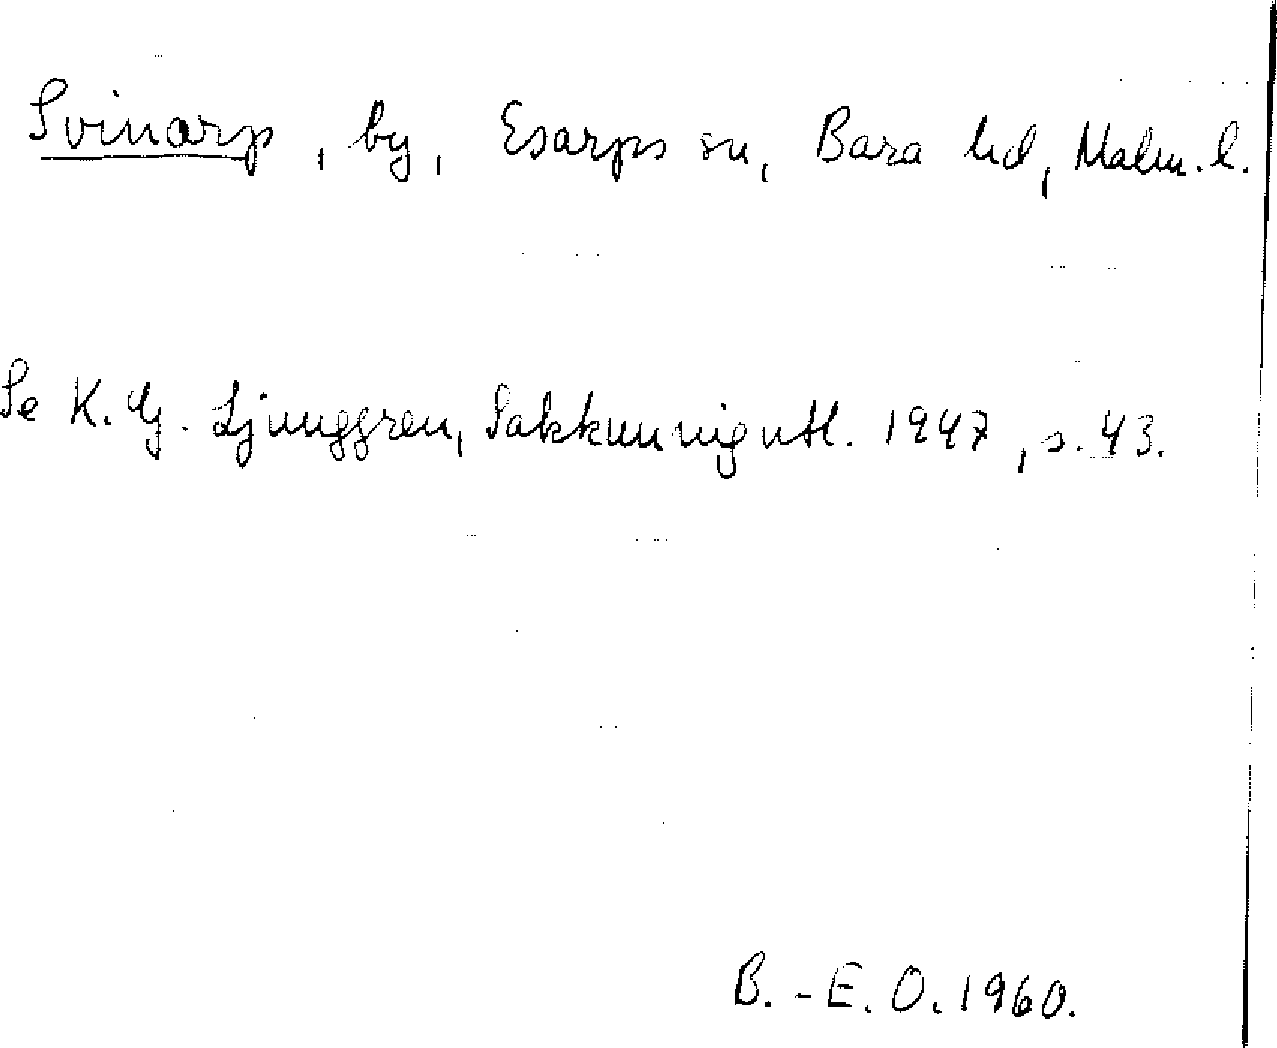 Svinarp, by, Esarps sn, Bara hd, Malm. l.
Se K. G. Ljunggren, Sakkunnigutl. 1947, s. 43.
B.-E. O. 1960.